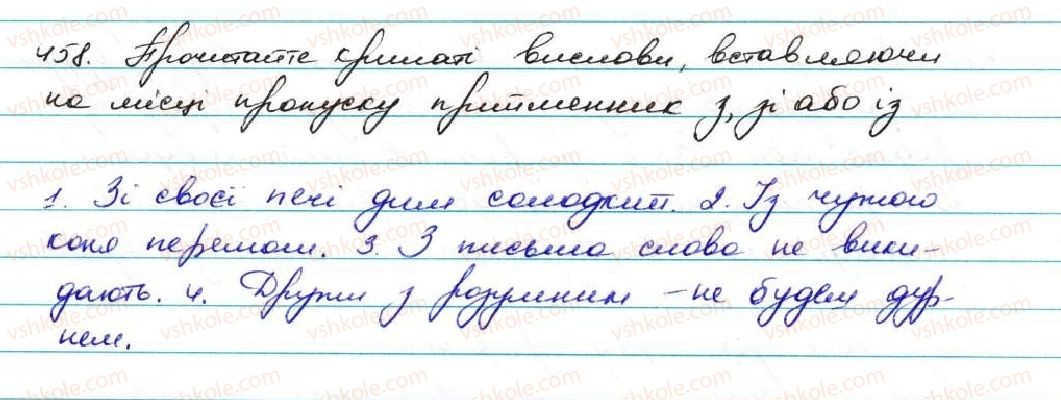 458. Прочитайте крилаті вислови, вставляючи
на місці пропуску прийменник з, зі або із
1. Зі своєї печі дим солодкий. 2. Із чужого
коня перемом. 3. З письма слова не вики-
дають. 4. Дружи з розумним - не будеш дур-
нем.